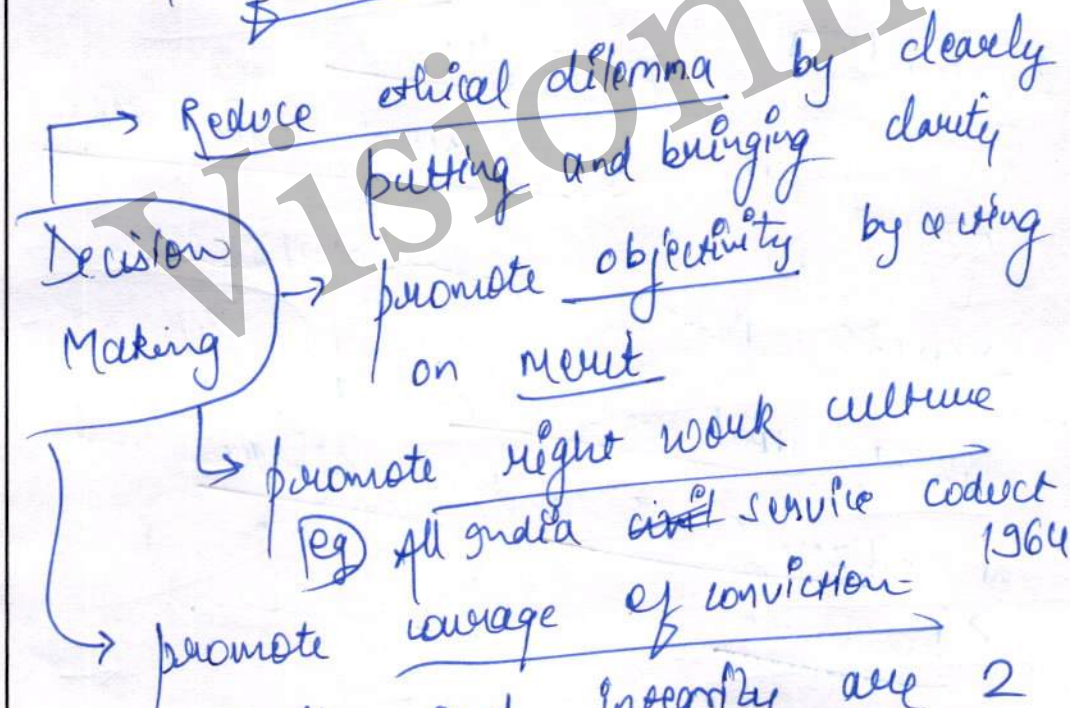 Reduce ethical dilemma by clearly
putting and bringing clarity
Decision
Making
promote objectivity by acting
on merit
promote right work culture
eg All India civil service coduct
1964
promote courage of conviction
Integrity are 2
VisionI